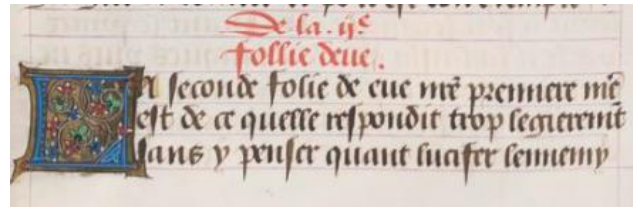 De la .ije
follie deue.
La seconde folie de eue mrē premiere mē
est de ce quelle respondit trop legieremt̄
sans y penser quant lucifer lennemy